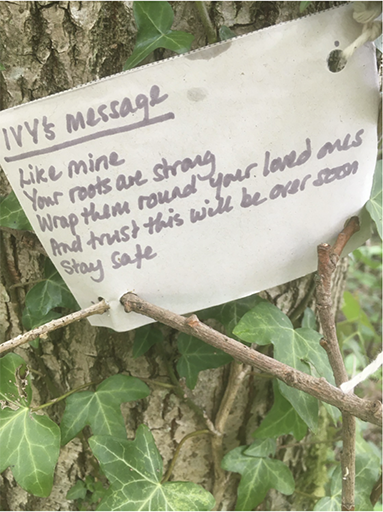 IVY's message
Like mine
Your roots are strong
Wrap them round your loved ones
And trust this will be over soon
Stay safe